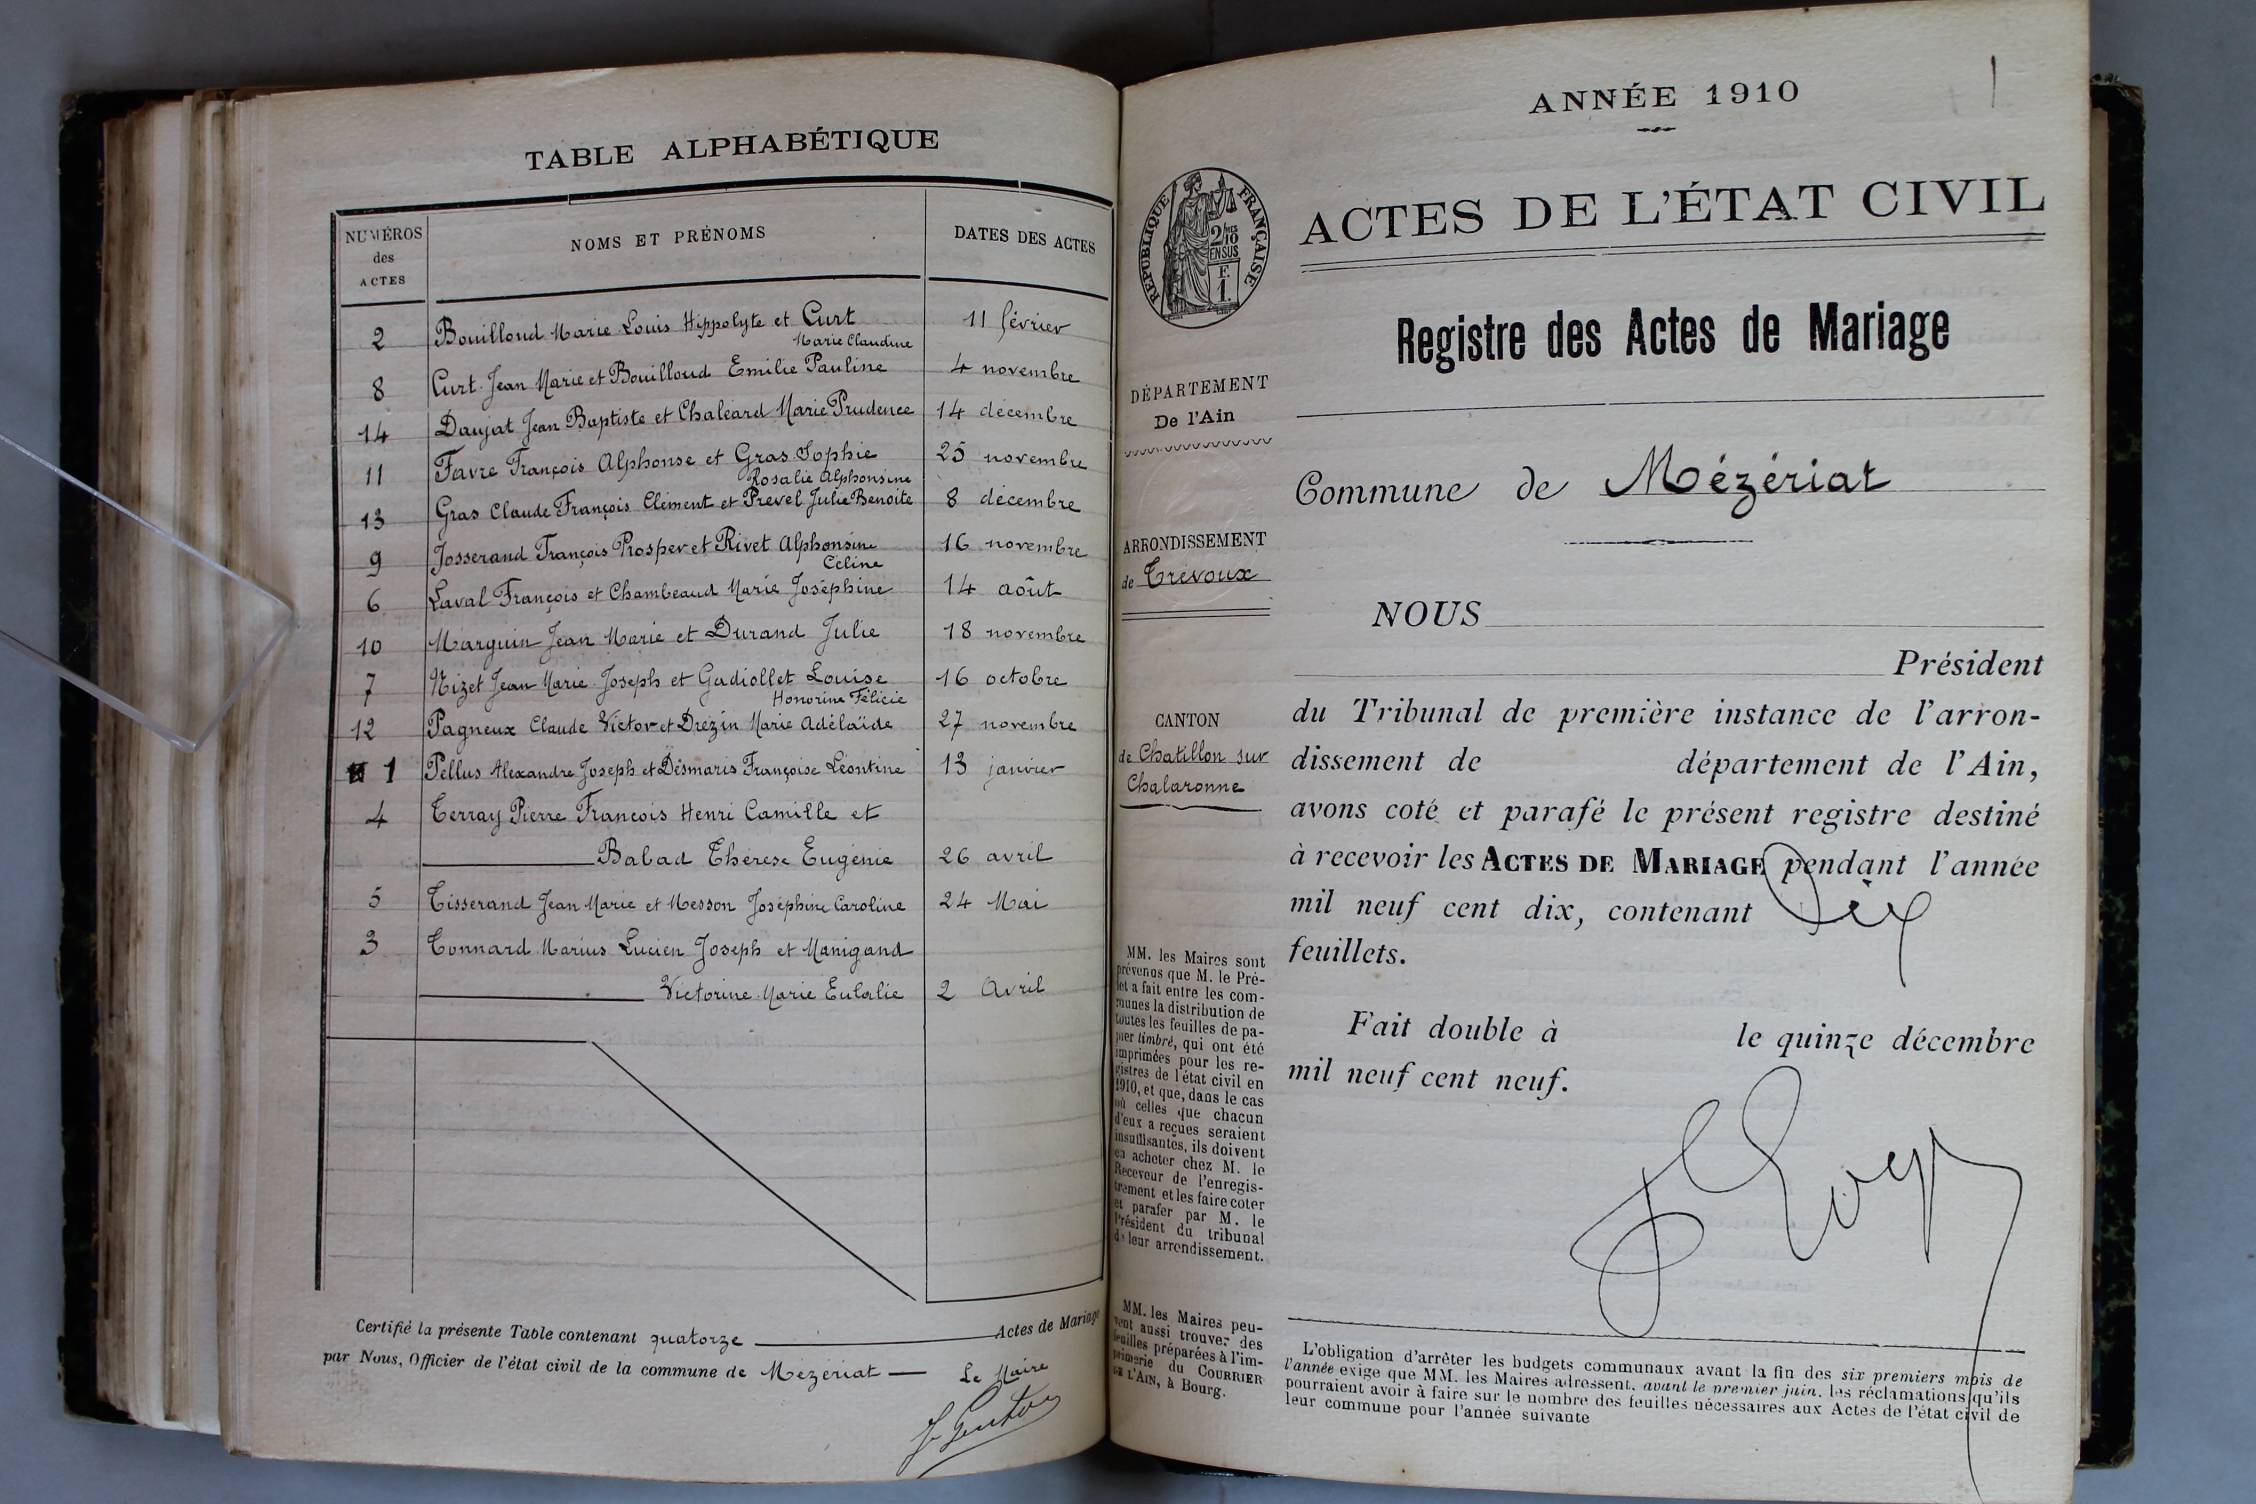 TABLE ALPHABÉTIQUE
NUMÉROS des ACTES NOMS ET PRÉNOMS DATES DES ACTES
2 Bouilloud Marie Louis Hippolyte et Curt 11 février
Marie Claudine
8 Curt Jean Marie et Bouilloud Emilie Pauline 4 novembre
14 Daujat Jean Baptiste et Chaléard Marie Prudence 14 décembre
11 Favre François Alphonse et Gras Sophie 25 novembre
Rosalie Alphonsine
13 Gras Claude François Clément et Prevel Julie Benoite 8 décembre
9 Josserand François Prosper et Rivet Alphonsine 16 novembre
Céline
6 Laval François et Chambeaud Marie Joséphine 14 août
10 Marguin Jean Marie et Durand Julie 18 novembre
7 Nizet Jean Marie Joseph et Gudiollet Louise 16 octobre
Honorine Félicie
12 Pagneux Claude Victor et Drezin Marie Adélaïde 27 novembre
1 Pellus Alexandre Joseph et Désmaris Françoise Léontine 13 janvier
4 Terray Pierre François Henri Camille et
Balad Thérèse Eugénie 26 avril
5 Tisserand Jean Marie et Messon Joséphine Caroline 24 Mai
3 Tonnard Marius Lucien Joseph et Manigand
Victorine Marie Eulalie 2 Avril
Certifié la présente Table contenant quatorze Actes de Mariage
par Nous, Officier de l'état civil de la commune de Mézériat Le Maire
ANNÉE 1910
1
RÉPUBLIQUE FRANÇAISE
2/10
EN SUS
F.
1.
ACTES DE L'ÉTAT CIVIL
Registre des Actes de Mariage
DÉPARTEMENT
De l'Ain
Commune de Mézériat
ARRONDISSEMENT
de Trévoux
CANTON
de Chatillon sur
Chalaronne
NOUS
Président
du Tribunal de première instance de l'arron-
dissement de département de l'Ain,
avons coté et parafé le présent registre destiné
à recevoir les ACTES DE MARIAGE pendant l'année
mil neuf cent dix, contenant Dix
feuillets.
Fait double à le quinze décembre
mil neuf cent neuf.
MM. les Maires sont
prévenus que M. le Pré-
fet a fait entre les com-
munes la distribution de
toutes les feuilles de pa-
pier timbré, qui ont été
imprimées pour les re-
gistres de l'état civil en
1910, et que, dans le cas
où celles que chacun
d'eux a reçues seraient
insuffisantes, ils doivent
en acheter chez M. le
Receveur de l'enregis-
trement et les faire coter
et parafer par M. le
Président du tribunal
de leur arrondissement.
MM. les Maires peu-
vent aussi trouver des
feuilles préparées à l'im-
primerie du COURRIER
DE L'AIN, à Bourg.
L'obligation d'arrêter les budgets communaux avant la fin des six premiers mois de
l'année exige que MM. les Maires adressent, avant le premier juin, les réclamations qu'ils
pourraient avoir à faire sur le nombre des feuilles nécessaires aux Actes de l'état civil de
leur commune pour l'année suivante